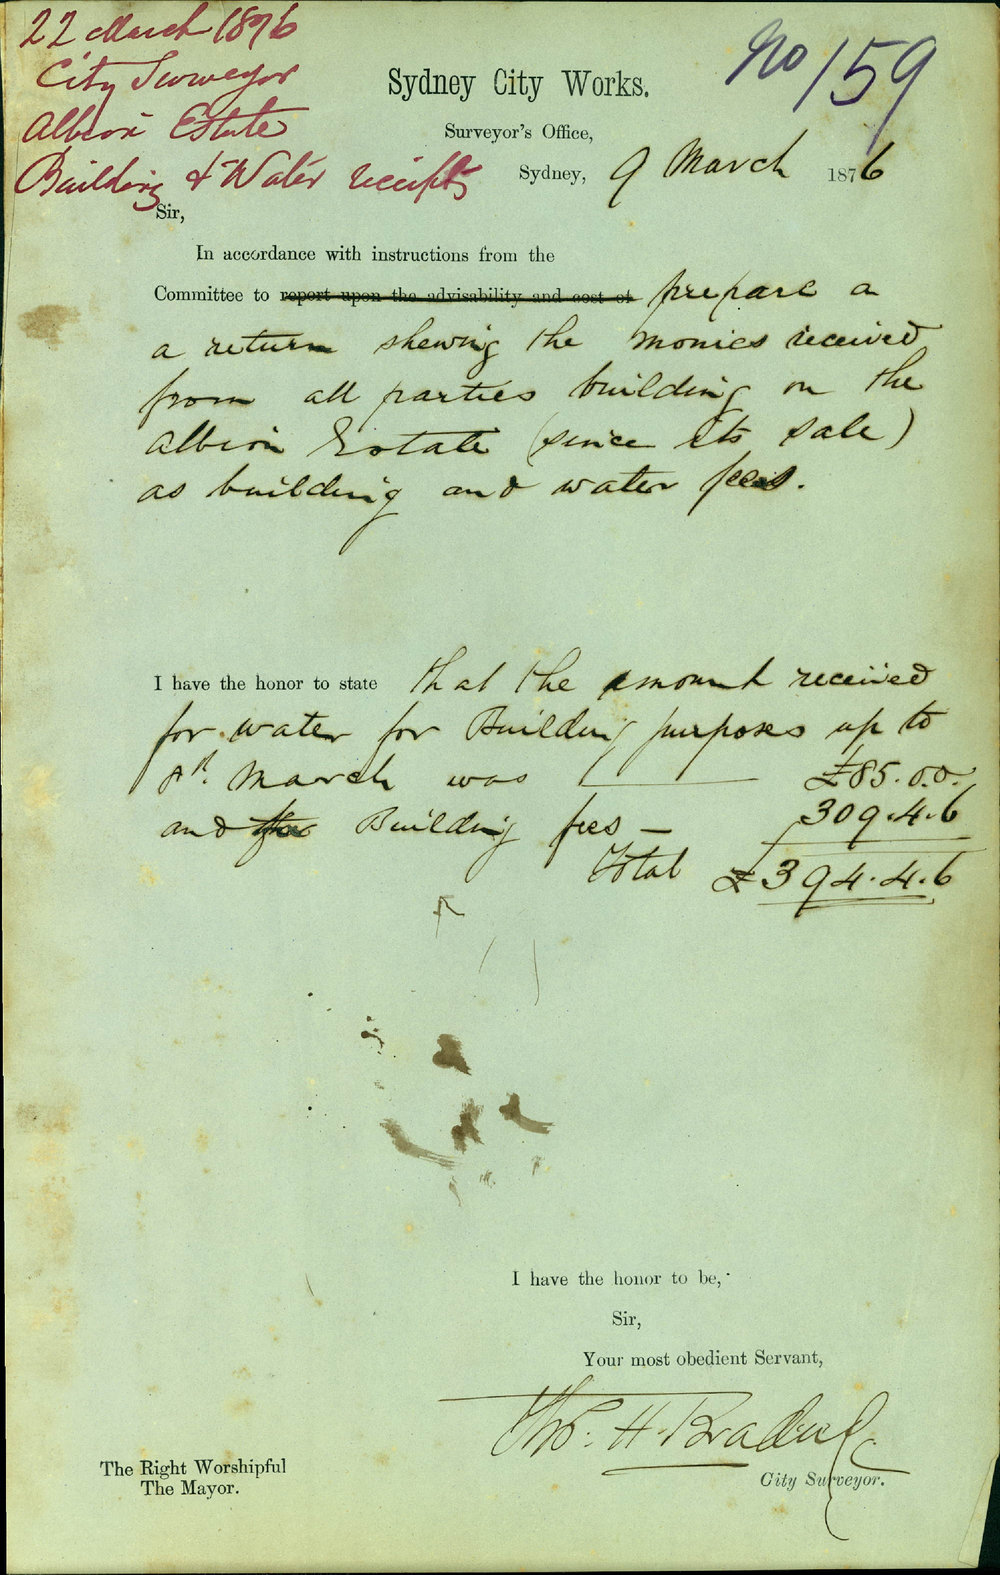 22 March 1876
City Surveyor
Albion Estate
Building & Water receipts
No 159
Sydney City Works.
Surveyor's Office,
Sydney, 9 March 1876
Sir,
In accordance with instructions from the
Committee to report upon the advisability and cost of prepare a
a return shewing the monies received
from all parties building on the
Albion Estate (since its sale)
as building and water fees.
I have the honor to state that the amount received
for water for Building purposes up to
8th. March was £85.0.0.
and for Building fees — 309.4.6
Total £394.4.6
I have the honor to be,
Sir,
Your most obedient Servant,
Tho.s H. Bradridge
City Surveyor.
The Right Worshipful
The Mayor.